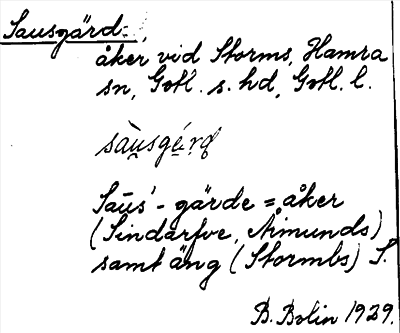 Sausgärd:
åker vid Storms, Hamra
sn, Gotl. s. hd, Gotl. l.
sàu̯sgé̯rd
Saūs'-gärde = åker
(Sindarfve, Åmunds)
samt äng (Stormbs) S.
B. Bolin 1929.